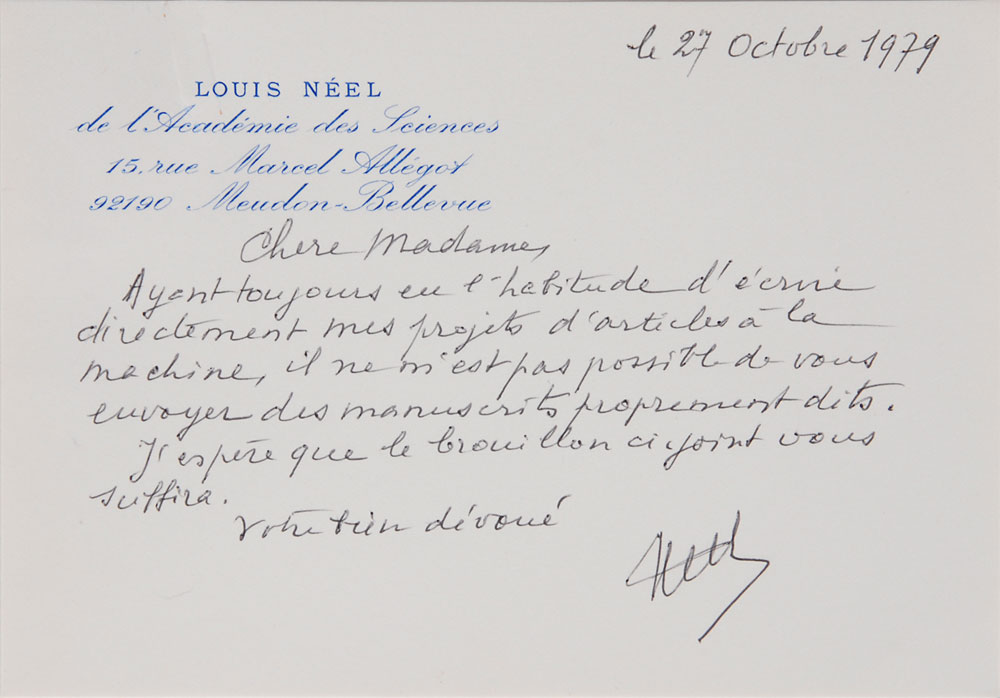 le 27 Octobre 1979
LOUIS NÉEL
de l'Académie des Sciences
15, rue Marcel Allégot
92190 Meudon-Bellevue
Chere Madame,
Ayant toujours eu l'habitude d'écrire
directement mes projets d'articles à la
machine, il ne m'est pas possible de vous
envoyer des manuscrits proprement dits.
J'espère que le brouillon ci joint vous
suffira.
Votre bien dévoué
Néel